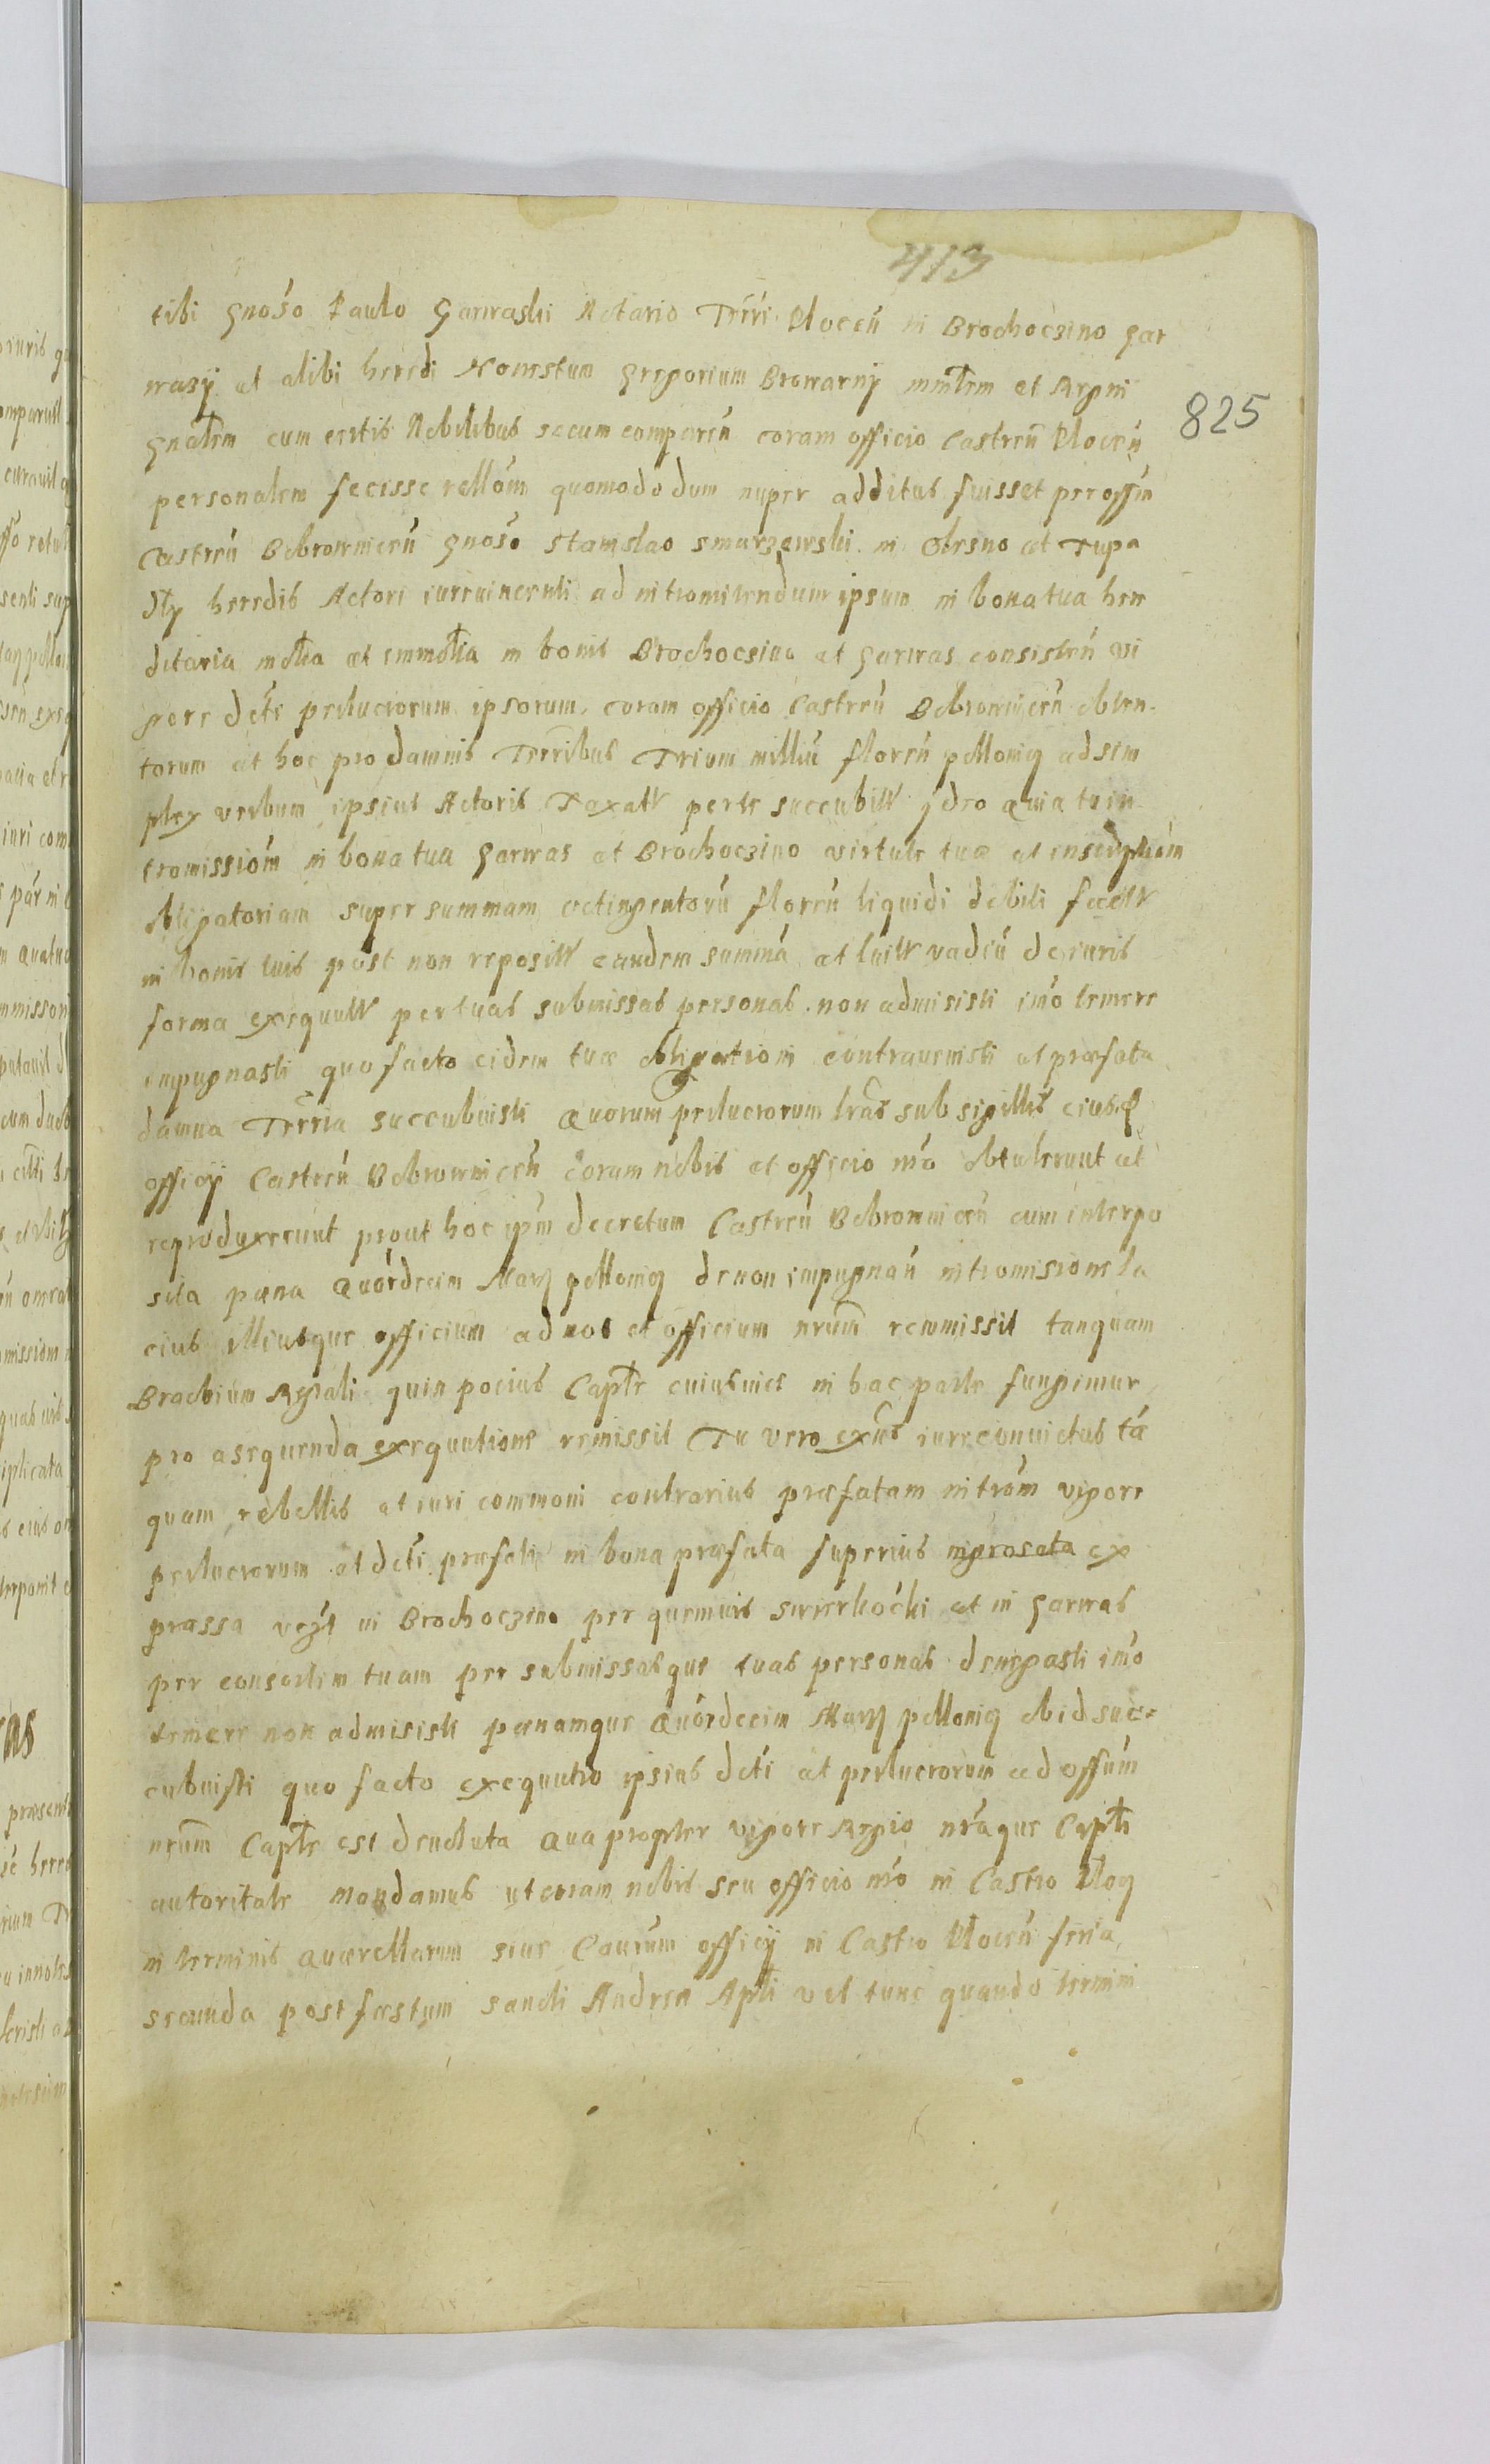 413
825
tibi gnoso Paulo Garwaski Notario Terri Plocen in Brochoczino Gar
wazÿ et alibi heredi Honestum Gregorium Browarnÿ mintrem et Regni
gnalem cum certis Nobilibus secum comparen coram officio Castren Plocen
personalem fecisse rellom quomodo dum nuper additus fuisset per offm
Castren Bobrownicen gnoso Stanislao Smarzewski in Olesno et Rupa
heredis Actori iurevincenti ad intromitendum ipsum in bona tua here
ditaria mobia et immobia in bonis Brochoczino et Garwas consisten vi
gore deti perlucrorum ipsorum coram officio Castren Bobrownicen obten-
torum et hoc pro damnis Terribus Trium milliu floren pollonig ad sim
plex verbum ipsius Actoris Taxatt perte succubitt ydeo Quia tu in-
tromissiom in bona tua Garwas et Brochoczino virtute tuæ et inscriptiom
obligatoriam super summam octingentoru floren liquidi debiti fact
in bonis tuis post non repositt eandem summa et luitt vadiu de iuris
forma exequutt per tuas submissas personas non admisisti imo temere
impugnasti quo facto eidem tuæ obligationi contravenisti et præfata
damna Terria succubuisti Quorum perlucrorum lras sub sigillis eiusd
officÿ Castren Bobrownicen coram nobis et officio nro obtulerunt et
reproduxerunt prout hoc ipm decretum Castren Bobrownicen cum interpo
sita pæna Quordecim Marg pollonig de non impugnan intromisione la
eius illiusque officium ad nos et officium nrum remmissit tanquam
Brachium Regali quin pocius Capte cuius vices in hac parte fungimur
pro asequenda exequutione remissit Tu vero exns iureconvictus ta
quam rebellis et iuri communi contrarius præfatam introm vigore
perlucrorum et deti præfati in bona præfata superius in prosata ex
præssa vezt in Brochoczino per quemvis Swierkocki et in Garwas
per consortem tuam per submissasque tuas personas denegasti imo
temere non admisisti pænamque Quordecim Marg pollonig ob id suc-
cubuisti quo facto exequutio ipsius deti et perlucrorum ad offum
nrum Capte est devoluta Qua propter vigore Regio nraque Capti
autoritate mandamus ut coram nobis seu officio nro in Castro Plog
in terminis Quærellarum siue Caurum officÿ in Castro Plocen feria
secunda post fæstum sancti Andreæ Apti vel tunc quando termini